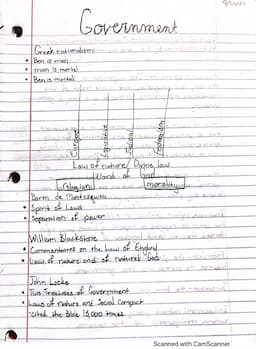 Government
Greek rationalism
• Ben is man
• man is mortal
• Ben is mortal
Legislative
Judicial
Federalism
Law of nature/ Divine law
Word of God
religion
morality
Baron de Montesquieu
• Spirit of Laws
• Separation of power
William Blackstone
• Commentaries on the Law of England
• Law of nature and of natures God
John Locke
• Two Treatises of Government
• Laws of nature and Social Compact
• cited the bible 15,000 times
Scanned with CamScanner